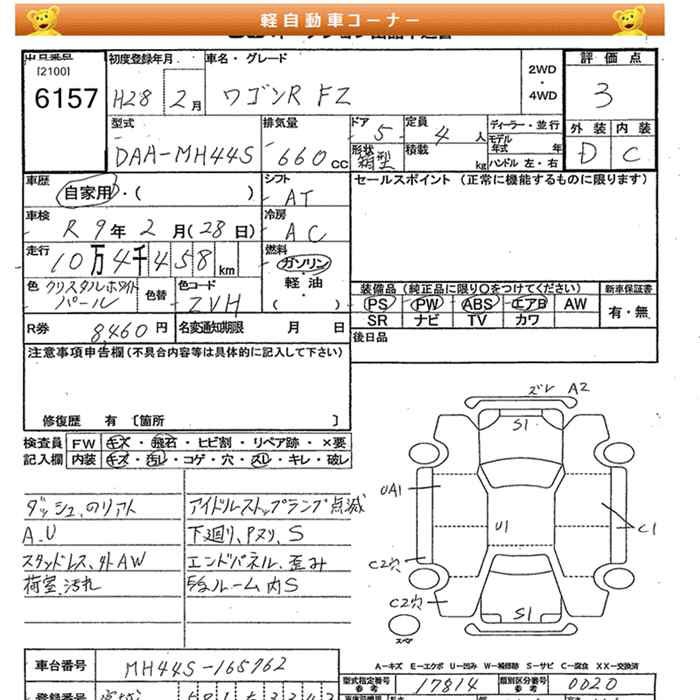 軽自動車コーナー
出品番号 初度登録年月 車名・グレード 評価点
[2100]
6157
H28 2月 ワゴンR FZ
2WD
・
4WD
3
型式 排気量 ドア 5 定員 4人 ディーラー・並行 外装 内装
DAA-MH44S 660cc
形状 箱型 積載 kg
モデル年式 年
ハンドル 左・右
D C
車歴 自家用・( )
シフト AT
セールスポイント (正常に機能するものに限ります)
車検 R9年2月(28日)
冷房 AC
走行 10万4千458km
燃料 ガソリン・軽油・( )
色 クリスタルホワイトパール 色替 色コード ZVH
装備品 (純正品に限り○をつけてください) 新車保証書
PS PW ABS エアB AW 有・無
SR ナビ TV カワ
R券 8,460円 名変通知期限 月 日
後日品
注意事項申告欄 (不具合内容等は具体的に記入して下さい)
修復歴 有 [箇所 ]
検査員 FW キズ・飛石・ヒビ割・リペア跡・×要
記入欄 内装 キズ・汚レ・コゲ・穴・スレ・キレ・破レ
ダッシュ、のリアト アイドルストップランプ点滅
A.U 下廻り、Pヌリ、S
スタッドレス、外AW エンドパネル、歪み
荷室、汚れ E/gルーム内S
ズレ A2
S1
UA1
U1
C1
C2穴
C2穴
S1
スペア
A−キズ E−エクボ U−凹み W−補修跡 S−サビ C−腐食 XX−交換済
車台番号 MH44S-165962
型式指定番号 参考 17814 類別区分番号 参考 0020
登録番号 宮城